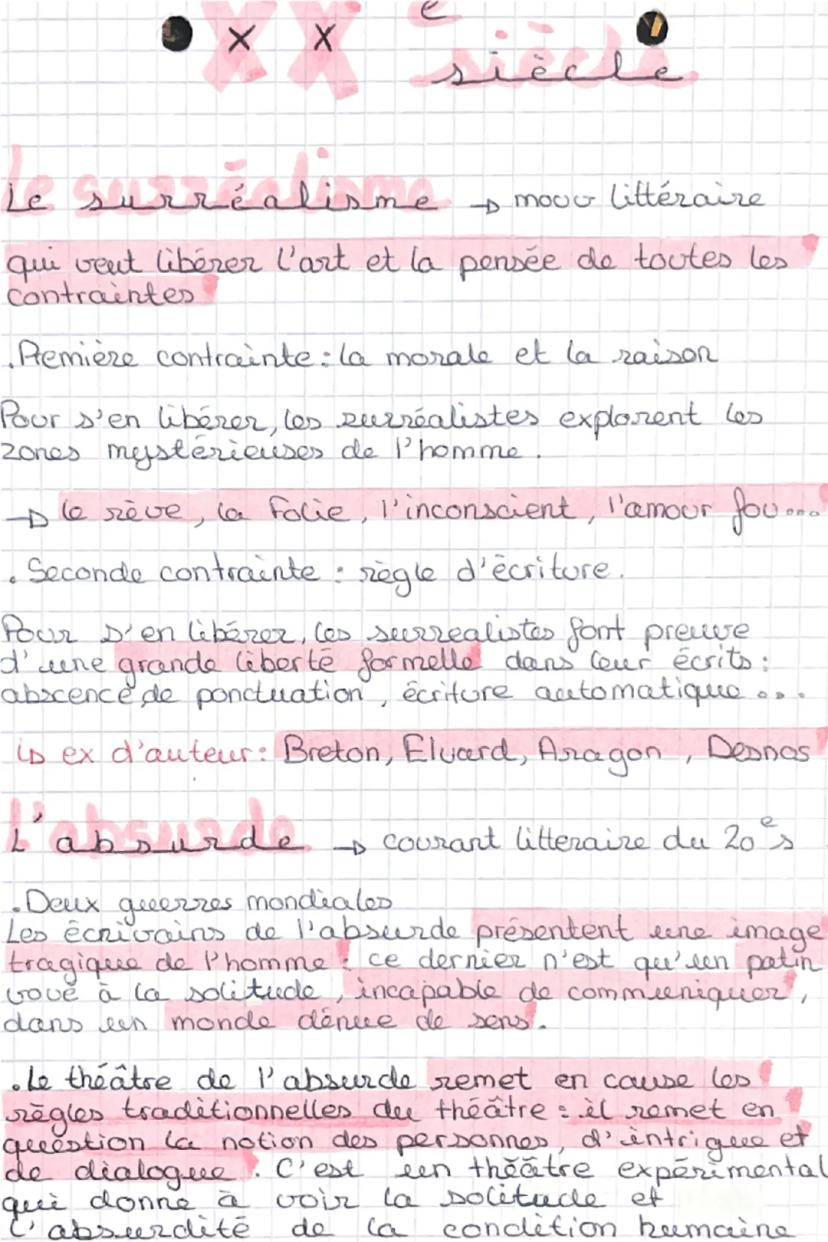 XX e siècle
Le surréalisme → mouv littéraire
qui veut libérer l'art et la pensée de toutes les
contraintes
. Première contrainte : la morale et la raison
Pour s'en libérer, les surréalistes explorent les
zones mystérieuses de l'homme.
→ le rêve, la folie, l'inconscient, l'amour fou...
. Seconde contrainte : règle d'écriture.
Pour s'en libérer, les surrealistes font preuve
d'une grande liberté formelle dans leur écrits :
abscence de ponctuation, écriture automatique...
↳ ex d'auteur : Breton, Eluard, Aragon, Desnos
L'absurde → courant litteraire du 20e s
. Deux guerres mondiales
Les écrivains de l'absurde présentent une image
tragique de l'homme : ce dernier n'est qu'un patin
voué à la solitude, incapable de communiquer,
dans un monde dénue de sens.
. Le théâtre de l'absurde remet en cause les
règles traditionnelles du théâtre : il remet en
question la notion des personnes, d'intrigue et
de dialogue. C'est un théâtre expérimental
qui donne à voir la solitude et
l'absurdité de la condition humaine